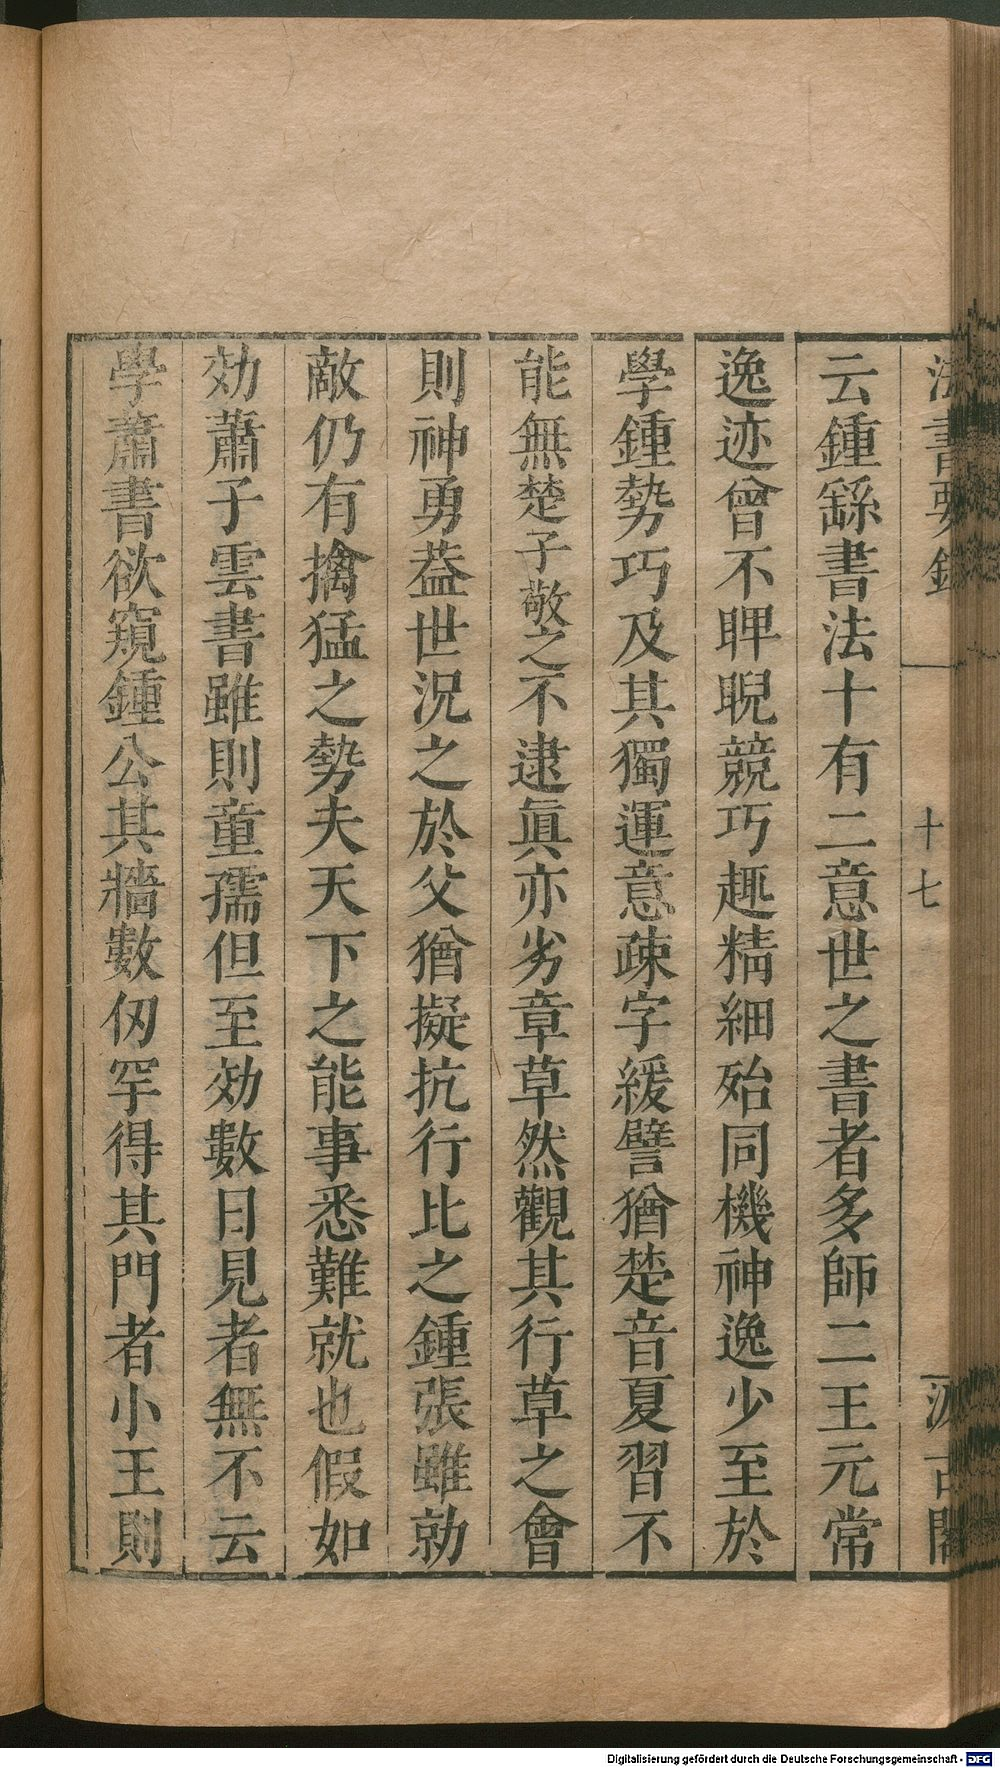 法書要錄 十七 汲古閣
云鍾繇書法十有二意世之書者多師二王元常
逸迹曾不睥睨競巧趣精細殆同機神逸少至於
學鍾勢巧及其獨運意疎字緩譬猶楚音夏習不
能無楚子敬之不逮眞亦劣章草然觀其行草之會
則神勇葢世況之於父猶擬抗行比之鍾張雖勍
敵仍有擒猛之勢夫天下之能事悉難就也假如
効蕭子雲書雖則童孺但至効數日見者無不云
學蕭書欲窺鍾公其牆數仭罕得其門者小王則
Digitalisierung gefördert durch die Deutsche Forschungsgemeinschaft - DFG